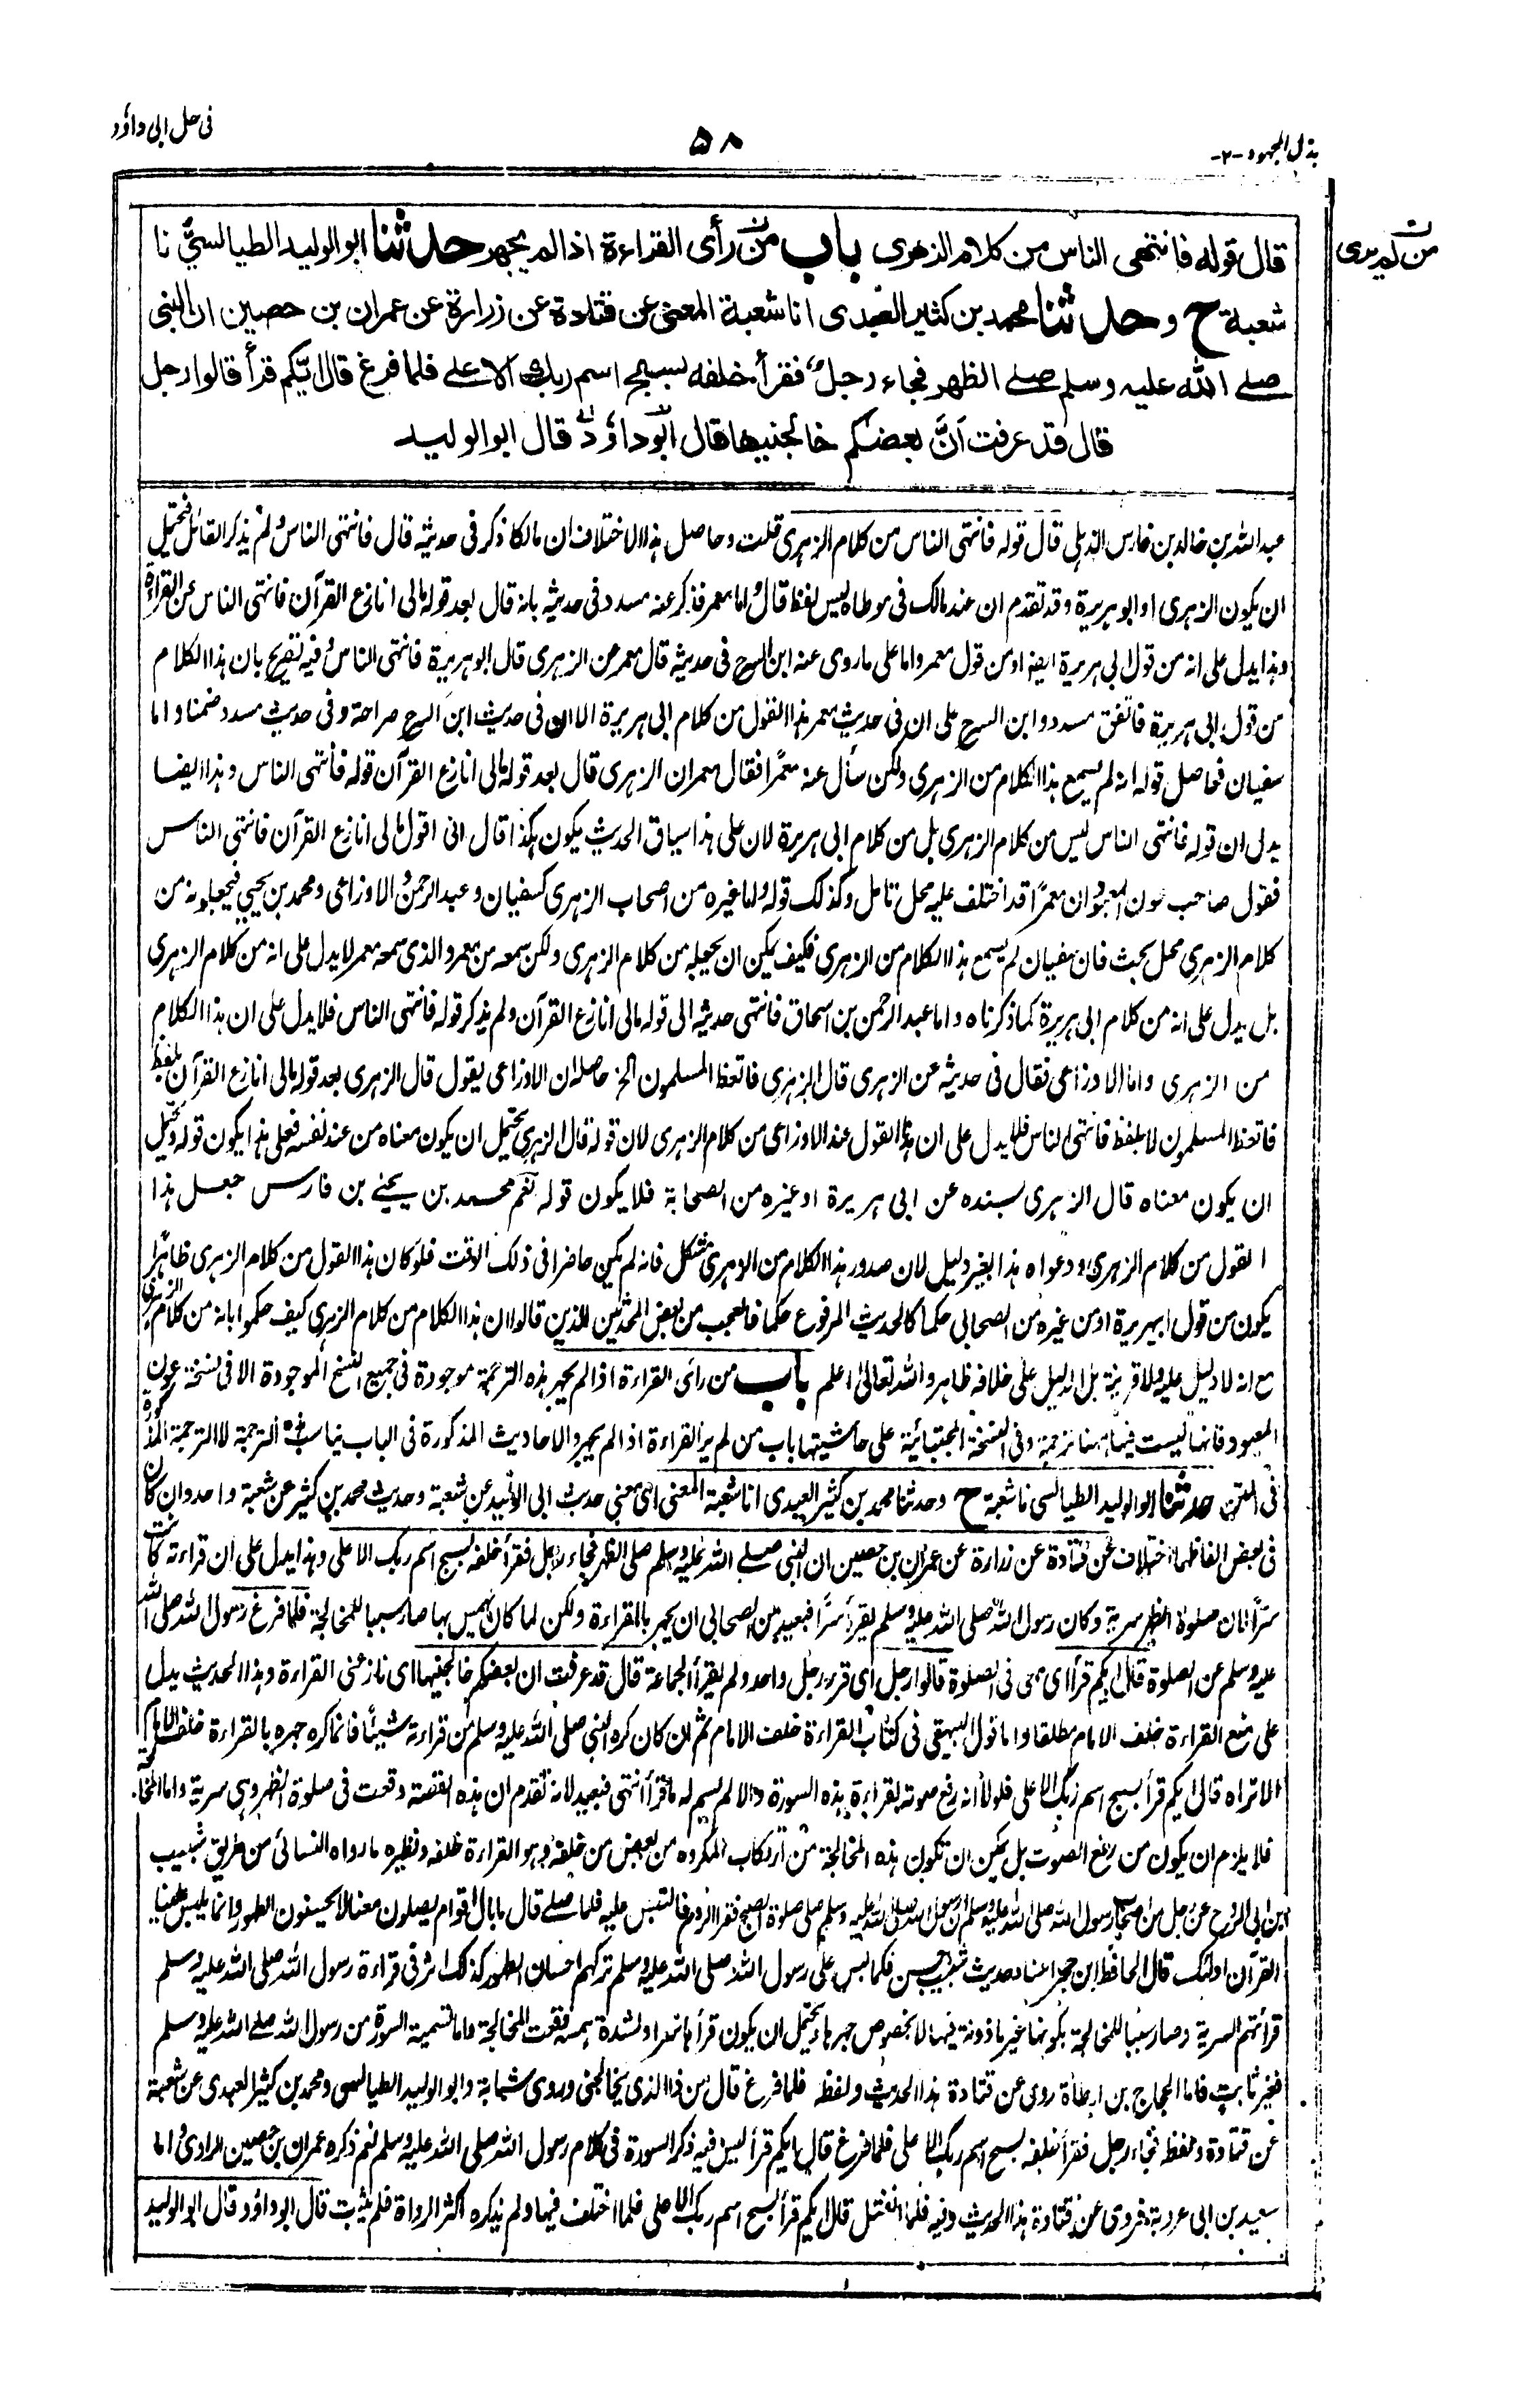 بذل المجهود -٢-
٥٨
فى حل ابى داؤد
من لم ير
قال قوله فانتهى الناس من كلام الزهرى باب من رأى القراءة اذا لم يجهر حدثنا ابو الوليد الطيالسيُّ نا
شعبة ح وحدثنا محمد بن كثير العبدى انا شعبة المعنى عن قتادة عن زرارة عن عمران بن حصين ان النبى
صلى الله عليه وسلم صلى الظهر فجاء رجلٌ فقرأ خلفه بسبح اسم ربك الاعلى فلما فرغ قال ايّكم قرأ قالوا رجل
قال قد عرفت اَنَّ بعضكم خالجنيها قال ابو داؤد قال ابو الوليد
عبد الله بن خالد بن فارس الذهلى قال قوله فانتهى الناس من كلام الزهرى قلت وحاصل هذا الاختلاف ان مالكا ذكر فى حديثه قال فانتهى الناس ولم يذكر القائل فيحتمل
ان يكون الزهرى او ابو هريرة وقد تقدم ان عند مالك فى موطاه ليس لفظ قال واما معمر فذكر عنه مسدد فى حديثه بانه قال بعد قوله مالى انازع القرآن فانتهى الناس عن القراءة
وهذا يدل على انه من قول ابى هريرة ايضا او من قول معمر واما على ما روى عنه ابن السرح فى حديثه قال معمر عن الزهرى قال ابو هريرة فانتهى الناس وفيه تصريح بان هذا الكلام
من قول ابى هريرة فاتفق مسدد وابن السرح على ان فى حديث معمر هذا القول من كلام ابى هريرة الا ان فى حديث ابن السرح صراحة وفى حديث مسدد ضمنا واما
سفيان فحاصل قوله انه لم يسمع هذا الكلام من الزهرى ولكن سأل عنه معمرًا فقال معمر ان الزهرى قال بعد قوله مالى انازع القرآن قوله فانتهى الناس وهذا ايضا
يدل ان قوله فانتهى الناس ليس من كلام الزهرى بل من كلام ابى هريرة لان على هذا سياق الحديث يكون هكذا قال انى اقول مالى انازع القرآن فانتهى الناس
فقول صاحب عون المعبود ان معمرًا قد اختلف عليه محل تامل وكذلك قوله واما غيره من اصحاب الزهرى كسفيان وعبد الرحمن والاوزاعى ومحمد بن يحيى فيجعلونه من
كلام الزهرى محل بحث فان سفيان لم يسمع هذا الكلام من الزهرى فكيف يمكن ان يجعله من كلام الزهرى ولكن سمعه من معمر والذى سمعه معمر لا يدل على انه من كلام الزهرى
بل يدل على انه من كلام ابى هريرة كما ذكرناه واما عبد الرحمن بن اسحاق فانتهى حديثه الى قوله مالى انازع القرآن ولم يذكر قوله فانتهى الناس فلا يدل على ان هذا الكلام
من الزهرى واما الاوزاعى فقال فى حديثه عن الزهرى قال الزهرى فاتعظ المسلمون الخ حاصله ان الاوزاعى يقول قال الزهرى بعد قوله مالى انازع القرآن بلفظ
فاتعظ المسلمون لا بلفظ فانتهى الناس فلا يدل على ان هذا القول عند الاوزاعى من كلام الزهرى لان قوله قال الزهرى يحتمل ان يكون معناه من عند نفسه فعلى هذا يكون قوله ويحتمل
ان يكون معناه قال الزهرى بسنده عن ابى هريرة او غيره من الصحابة فلا يكون قوله نعم محمد بن يحيى بن فارس جعل هذا
القول من كلام الزهرى ودعواه هذا بغير دليل لان صدور هذا الكلام من الزهرى مشكل فانه لم يكن حاضرا فى ذلك الوقت فلو كان هذا القول من كلام الزهرى ظاهرًا
يكون من قول ابى هريرة او من غيره من الصحابى حكما كالحديث المرفوع حكما فالعجب من بعض المحدثين الذين قالوا ان هذا الكلام من كلام الزهرى كيف حكموا بانه من كلام الزهرى
مع انه لا دليل عليه ولا قرينة بل الدليل على خلافه ظاهر والله تعالى اعلم باب من رأى القراءة اذا لم يجهر هذه الترجمة موجودة فى جميع النسخ الموجودة الا فى نسخة عون
المعبود فانها ليست فيها ههنا ترجمة وفى النسخة المجتبائية على حاشيتها باب من لم ير القراءة اذا لم يجهر والاحاديث المذكورة فى الباب يناسب هذه الترجمة لا الترجمة المذكورة
فى المتن حدثنا ابو الوليد الطيالسى نا شعبة ح وحدثنا محمد بن كثير العبدى انا شعبة المعنى اى معنى حديث ابى الوليد عن شعبة وحديث محمد بن كثير عن شعبة واحد وان كان
فى بعض الفاظهما اختلاف عن قتادة عن زرارة عن عمران بن حصين ان النبى صلى الله عليه وسلم صلى الظهر فجاء رجل فقرأ خلفه بسبح اسم ربك الاعلى وهذا يدل على ان قراءته كانت
سرًا فان صلوة الظهر سرية وكان رسول الله صلى الله عليه وسلم يقرأ سرًا فبعيد من الصحابى ان يجهر بالقراءة ولكن لما كان يهمس بها صار سببا للمخالجة فلما فرغ رسول الله صلى الله
عليه وسلم عن الصلوة قال ايكم قرأ اى معى فى الصلوة قالوا رجل اى قرأ رجل واحد ولم يقرأ الجماعة قال قد عرفت ان بعضكم خالجنيها اى نازعنى القراءة وهذا الحديث يدل
على منع القراءة خلف الامام مطلقا واما قول البيهقى فى كتاب القراءة خلف الامام ثم ان كان كره النبى صلى الله عليه وسلم من قراءته شيئًا فانما كره جهره بالقراءة خلف الامام
الا تراه قال ايكم قرأ بسبح اسم ربك الاعلى فلولا انه رفع صوته بقراءة هذه السورة والا لم يسم له ما قرأ انتهى فبعيد لانه تقدم ان هذه القصة وقعت فى صلوة الظهر وهى سرية واما المخالجة
فلا يلزم ان يكون من رفع الصوت بل يمكن ان تكون هذه المخالجة من ارتكاب المكروه من بعض من خلفه وهو القراءة خلفه ونظيره ما رواه النسائى من طريق شبيب
بن ابى الروح عن رجل من اصحاب رسول الله صلى الله عليه وسلم ان رسول الله صلى الله عليه وسلم صلى صلوة الصبح فقرأ الروم فالتبس عليه فلما صلى قال ما بال اقوام يصلون معنا لا يحسنون الطهور وانما يلبس علينا
القرآن اولئك قال الحافظ ابن حجر اسناد حديث شبيب حسن فكما لبس على رسول الله صلى الله عليه وسلم تركهم احسان الطهور كذلك اثر فى قراءة رسول الله صلى الله عليه وسلم
قرأتهم السرية وصار سببا للمخالجة بكونها غير ماذونة فيها لا بخصوص جهرها ويحتمل ان يكون قرأ لشدة همسه فوقعت المخالجة واما تسمية السورة من رسول الله صلى الله عليه وسلم
فغير ثابت فاما الحجاج بن ارطاة روى عن قتادة هذا الحديث ولفظه فلما فرغ قال من ذا الذى يخالجنى وروى شبابة وابو الوليد الطيالسى ومحمد بن كثير العبدى عن شعبة
عن قتادة ولفظه فجاء رجل فقرأ خلفه بسبح اسم ربك الاعلى فلما فرغ قال ايكم قرأ ليس فيه ذكر السورة فى كلام رسول الله صلى الله عليه وسلم نعم ذكره عمران بن حصين الراوى واما
سعيد بن ابى عروبة فروى عن قتادة هذا الحديث وفيه فلما انفتل قال ايكم قرأ بسبح اسم ربك الاعلى فلما اختلف فيها ولم يذكره اكثر الرواة فلم يثبت قال ابو داؤد قال ابو الوليد